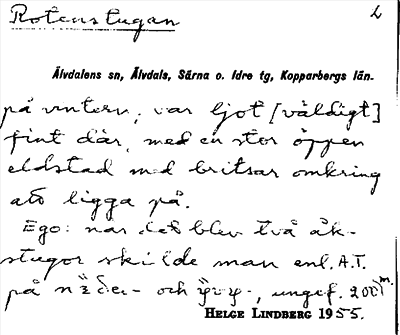 Rotenstugan
2
Älvdalens sn, Älvdals, Särna o. Idre tg, Kopparbergs län.
på vntern, var ljot [väldigt]
fint där, med en stor öppen
eldstad med britsar omkring
att ligga på.
Ego: när det blev två åk-
stugor skilde man enl. A.T.
på och ungef. 200 m.
HELGE LINDBERG 1955.